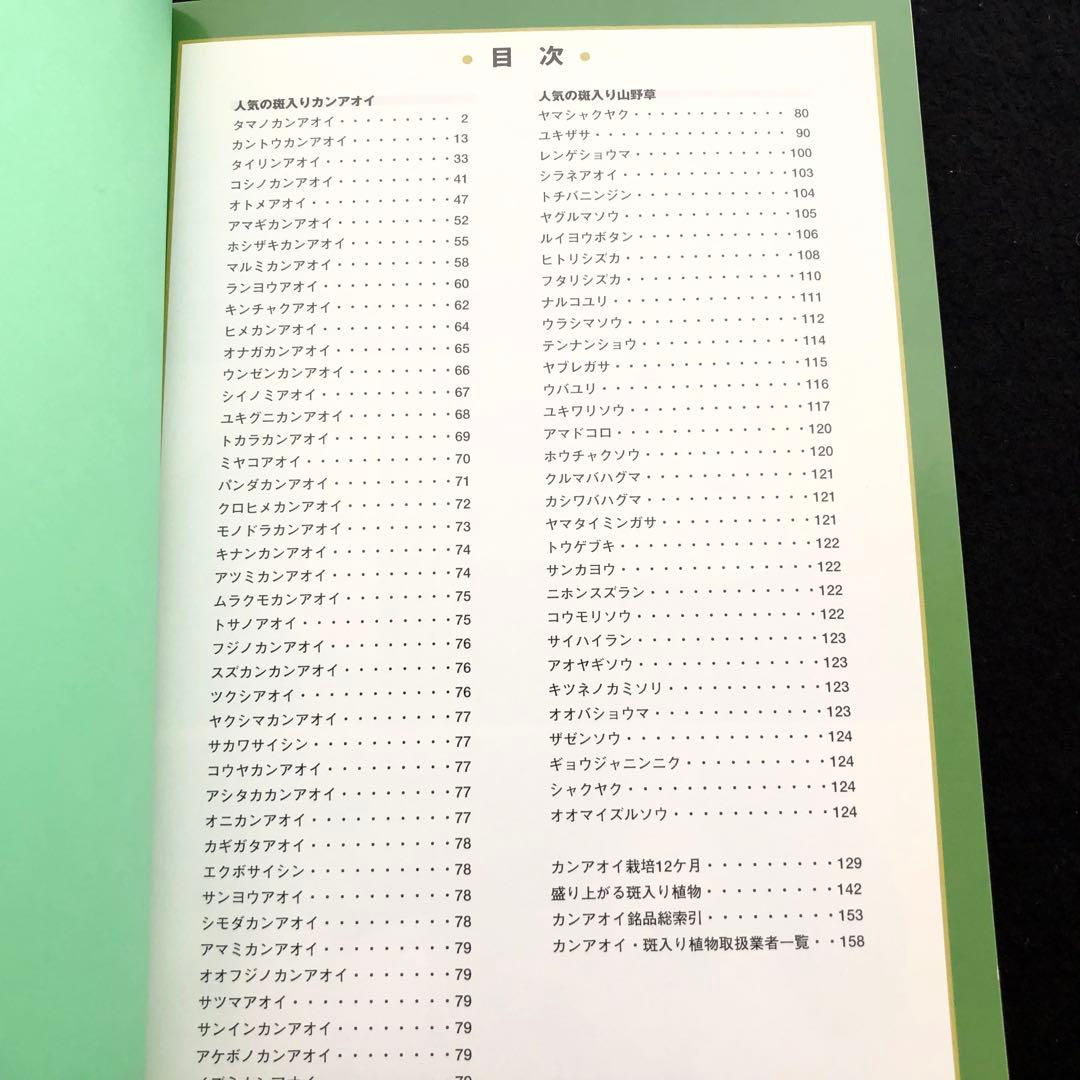 目 次
人気の斑入りカンアオイ
タマノカンアオイ・・・・・・・・・2
カントウカンアオイ・・・・・・・・13
タイリンアオイ・・・・・・・・・・33
コシノカンアオイ・・・・・・・・・41
オトメアオイ・・・・・・・・・・・47
アマギカンアオイ・・・・・・・・・52
ホシザキカンアオイ・・・・・・・・55
マルミカンアオイ・・・・・・・・・58
ランヨウアオイ・・・・・・・・・・60
キンチャクアオイ・・・・・・・・・62
ヒメカンアオイ・・・・・・・・・・64
オナガカンアオイ・・・・・・・・・65
ウンゼンカンアオイ・・・・・・・・66
シイノミアオイ・・・・・・・・・・67
ユキグニカンアオイ・・・・・・・・68
トカラカンアオイ・・・・・・・・・69
ミヤコアオイ・・・・・・・・・・・70
パンダカンアオイ・・・・・・・・・71
クロヒメカンアオイ・・・・・・・・72
モノドラカンアオイ・・・・・・・・73
キナンカンアオイ・・・・・・・・・74
アツミカンアオイ・・・・・・・・・74
ムラクモカンアオイ・・・・・・・・75
トサノアオイ・・・・・・・・・・・75
フジノカンアオイ・・・・・・・・・76
スズカンカンアオイ・・・・・・・・76
ツクシアオイ・・・・・・・・・・・76
ヤクシマカンアオイ・・・・・・・・77
サカワサイシン・・・・・・・・・・77
コウヤカンアオイ・・・・・・・・・77
アシタカカンアオイ・・・・・・・・77
オニカンアオイ・・・・・・・・・・77
カギガタアオイ・・・・・・・・・・78
エクボサイシン・・・・・・・・・・78
サンヨウアオイ・・・・・・・・・・78
シモダカンアオイ・・・・・・・・・78
アマミカンアオイ・・・・・・・・・79
オオフジノカンアオイ・・・・・・・79
サツマアオイ・・・・・・・・・・・79
サンインカンアオイ・・・・・・・・79
アケボノカンアオイ・・・・・・・・79
人気の斑入り山野草
ヤマシャクヤク・・・・・・・・・・・・80
ユキザサ・・・・・・・・・・・・・・90
レンゲショウマ・・・・・・・・・・・・100
シラネアオイ・・・・・・・・・・・・・103
トチバニンジン・・・・・・・・・・・・104
ヤグルマソウ・・・・・・・・・・・・・105
ルイヨウボタン・・・・・・・・・・・・106
ヒトリシズカ・・・・・・・・・・・・・108
フタリシズカ・・・・・・・・・・・・・110
ナルコユリ・・・・・・・・・・・・・・111
ウラシマソウ・・・・・・・・・・・・・112
テンナンショウ・・・・・・・・・・・・114
ヤブレガサ・・・・・・・・・・・・・・115
ウバユリ・・・・・・・・・・・・・・・116
ユキワリソウ・・・・・・・・・・・・・117
アマドコロ・・・・・・・・・・・・・・120
ホウチャクソウ・・・・・・・・・・・・120
クルマバハグマ・・・・・・・・・・・・121
カシワバハグマ・・・・・・・・・・・・121
ヤマタイミンガサ・・・・・・・・・・・121
トウゲブキ・・・・・・・・・・・・・・122
サンカヨウ・・・・・・・・・・・・・・122
ニホンスズラン・・・・・・・・・・・・122
コウモリソウ・・・・・・・・・・・・・122
サイハイラン・・・・・・・・・・・・・123
アオヤギソウ・・・・・・・・・・・・・123
キツネノカミソリ・・・・・・・・・・・123
オオバショウマ・・・・・・・・・・・・123
ザゼンソウ・・・・・・・・・・・・・・124
ギョウジャニンニク・・・・・・・・・・124
シャクヤク・・・・・・・・・・・・・・124
オオマイズルソウ・・・・・・・・・・・124
カンアオイ栽培12ケ月・・・・・・・・・129
盛り上がる斑入り植物・・・・・・・・・142
カンアオイ銘品総索引・・・・・・・・・153
カンアオイ・斑入り植物取扱業者一覧・・158